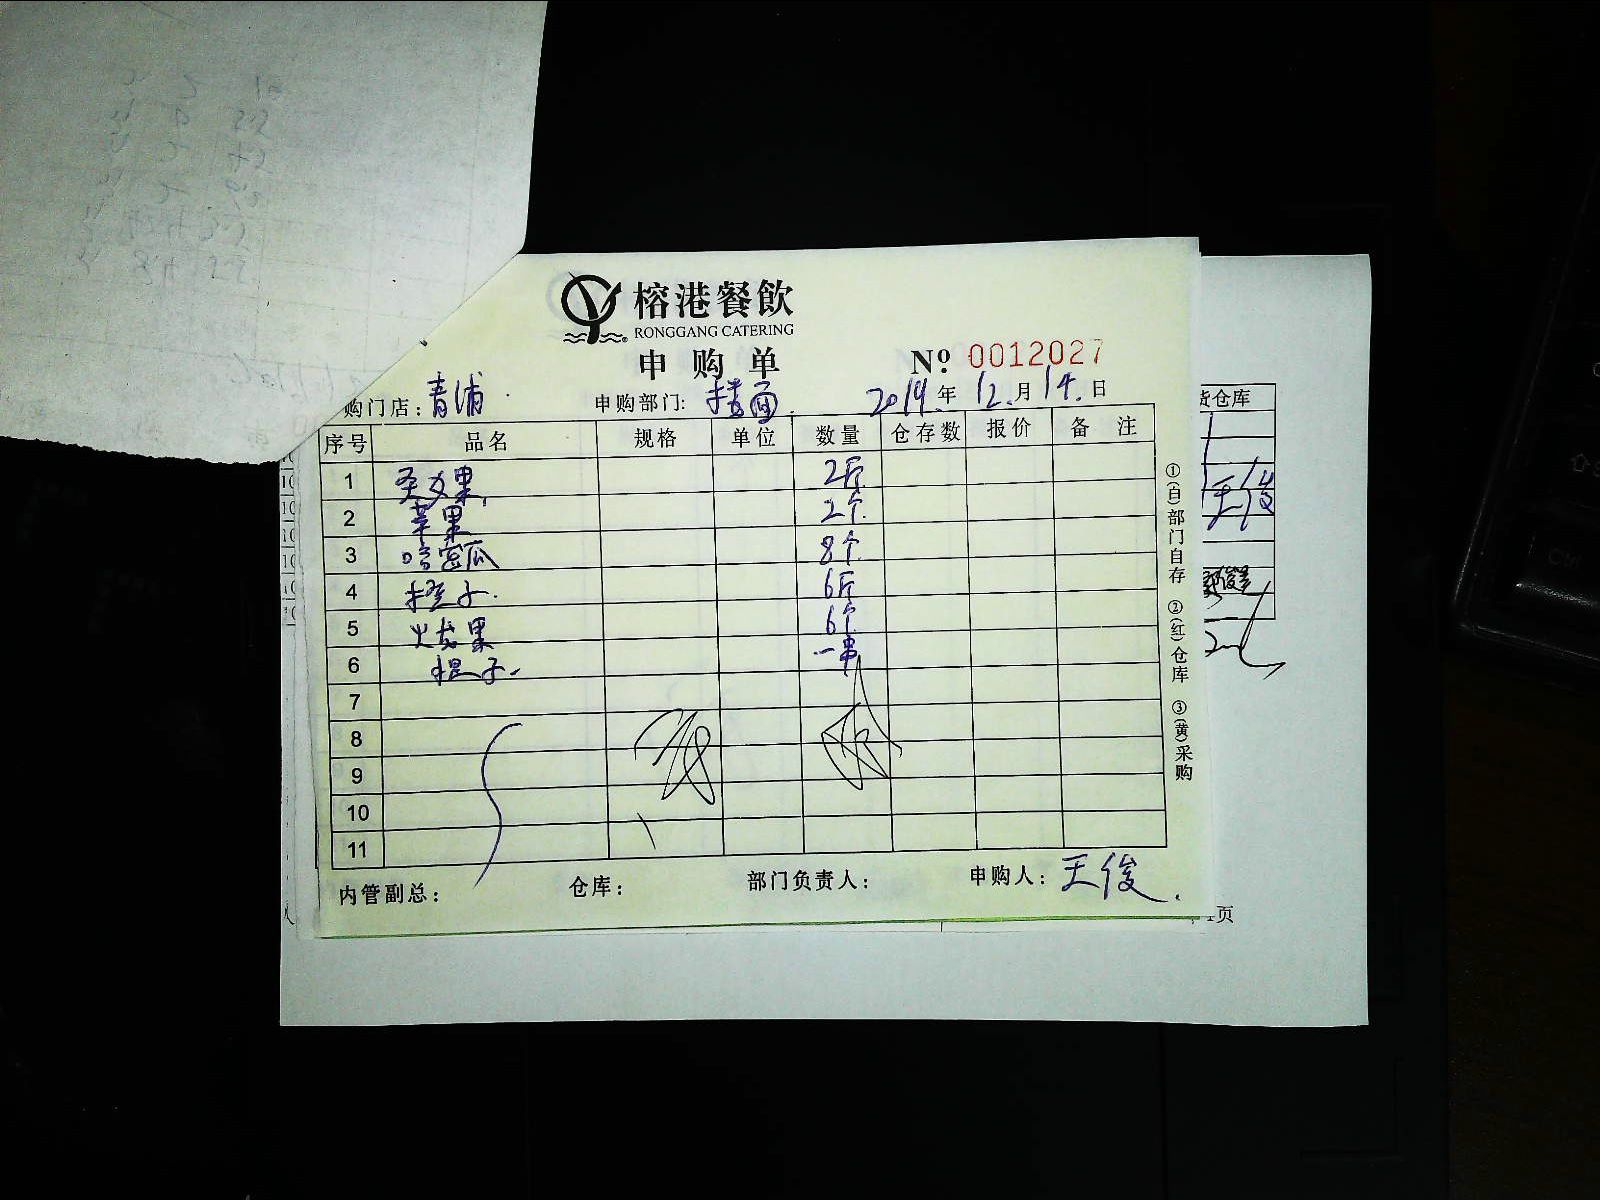 榕港餐飲
RONGGANG CATERING
申购单
Nº 0012027
购门店：青浦
申购部门：楼面
2019年12月14日
序号 品名 规格 单位 数量 仓存数 报价 备注
1 圣女果 2斤
2 苹果 2个
3 哈密瓜 8个
4 橙子 6斤
5 火龙果 6个
6 提子 一串
7
8
9
10
11
①(白)部门自存 ②(红)仓库 ③(黄)采购
内管副总： 仓库： 部门负责人： 申购人：王俊
仓库
王俊
页